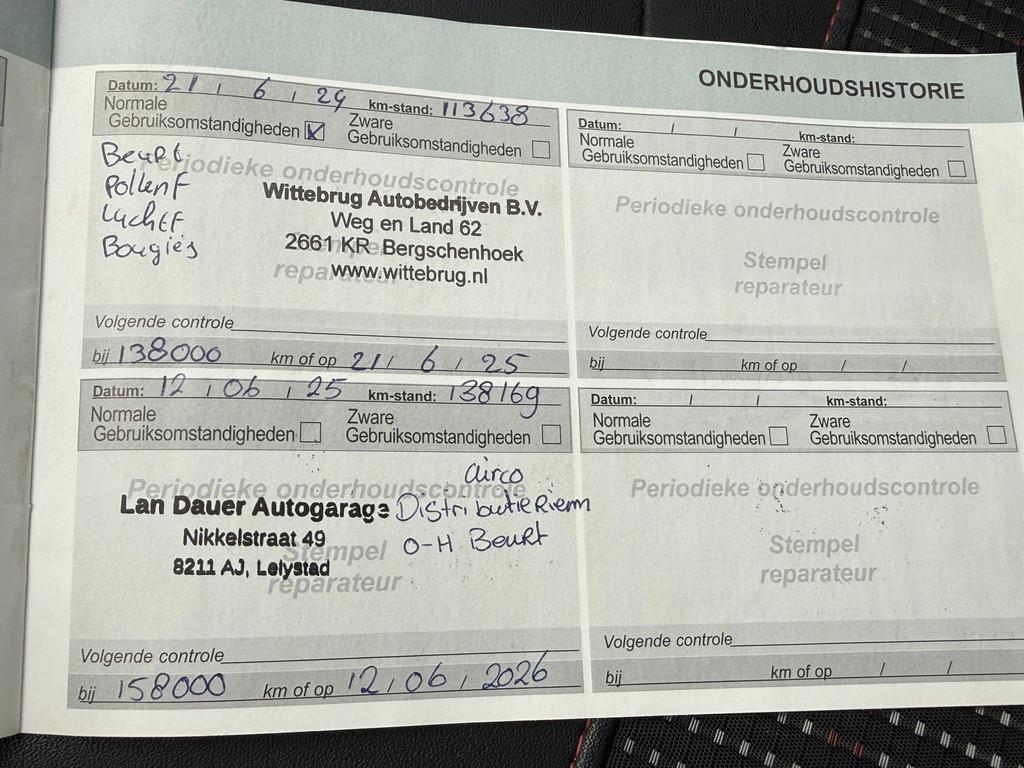 ONDERHOUDSHISTORIE
Datum: 21 / 6 / 24 km-stand: 113638
Normale Gebruiksomstandigheden
Zware Gebruiksomstandigheden
Beurt
Pollenf
Luchtf
Bougies
Periodieke onderhoudscontrole
Stempel
reparateur
Wittebrug Autobedrijven B.V.
Weg en Land 62
2661 KR Bergschenhoek
www.wittebrug.nl
Volgende controle
bij 138000 km of op 21 / 6 / 25
Datum: 12 / 06 / 25 km-stand: 138169
Normale Gebruiksomstandigheden
Zware Gebruiksomstandigheden
Periodieke onderhoudscontrole
Stempel
reparateur
Lan Dauer Autogarage
Nikkelstraat 49
8211 AJ, Lelystad
airco
Distributie Riem
O-H Beurt
Volgende controle
bij 158000 km of op 12 / 06 / 2026
Datum: / / km-stand:
Normale Gebruiksomstandigheden
Zware Gebruiksomstandigheden
Periodieke onderhoudscontrole
Stempel
reparateur
Volgende controle
bij km of op / /
Datum: / / km-stand:
Normale Gebruiksomstandigheden
Zware Gebruiksomstandigheden
Periodieke onderhoudscontrole
Stempel
reparateur
Volgende controle
bij km of op / /